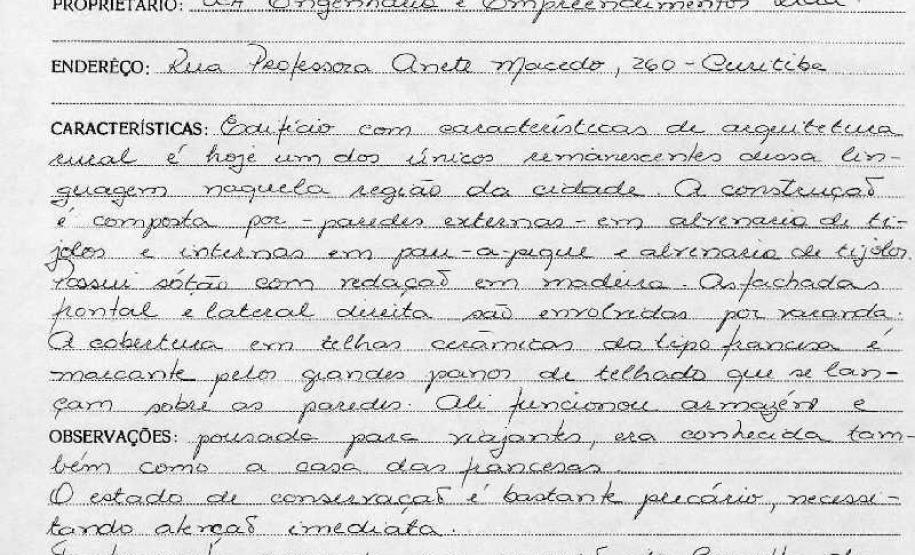 PROPRIETÁRIO: Engenharia e Empreendimentos Ltda.
ENDERÊÇO: Rua Professora Anete Macedo, 260 - Curitiba
CARACTERÍSTICAS: Edifício com características de arquitetura
rural é hoje um dos únicos remanescentes dessa lin-
guagem naquela região da cidade. A construção
é composta por - paredes externas - em alvenaria de ti-
jolos e internas em pau-a-pique e alvenaria de tijolos.
Possui sótão com vedação em madeira. As fachadas
frontal e lateral direita são envolvidas por varanda.
A cobertura em telhas cerâmicas do tipo francesa é
marcante pelos grandes panos de telhado que se lan-
çam sobre as paredes. Ali funcionou armazém e
OBSERVAÇÕES: pousada para viajantes, era conhecida tam-
bém como a casa das francesas.
O estado de conservação é bastante precário, necessi-
tando atenção imediata.